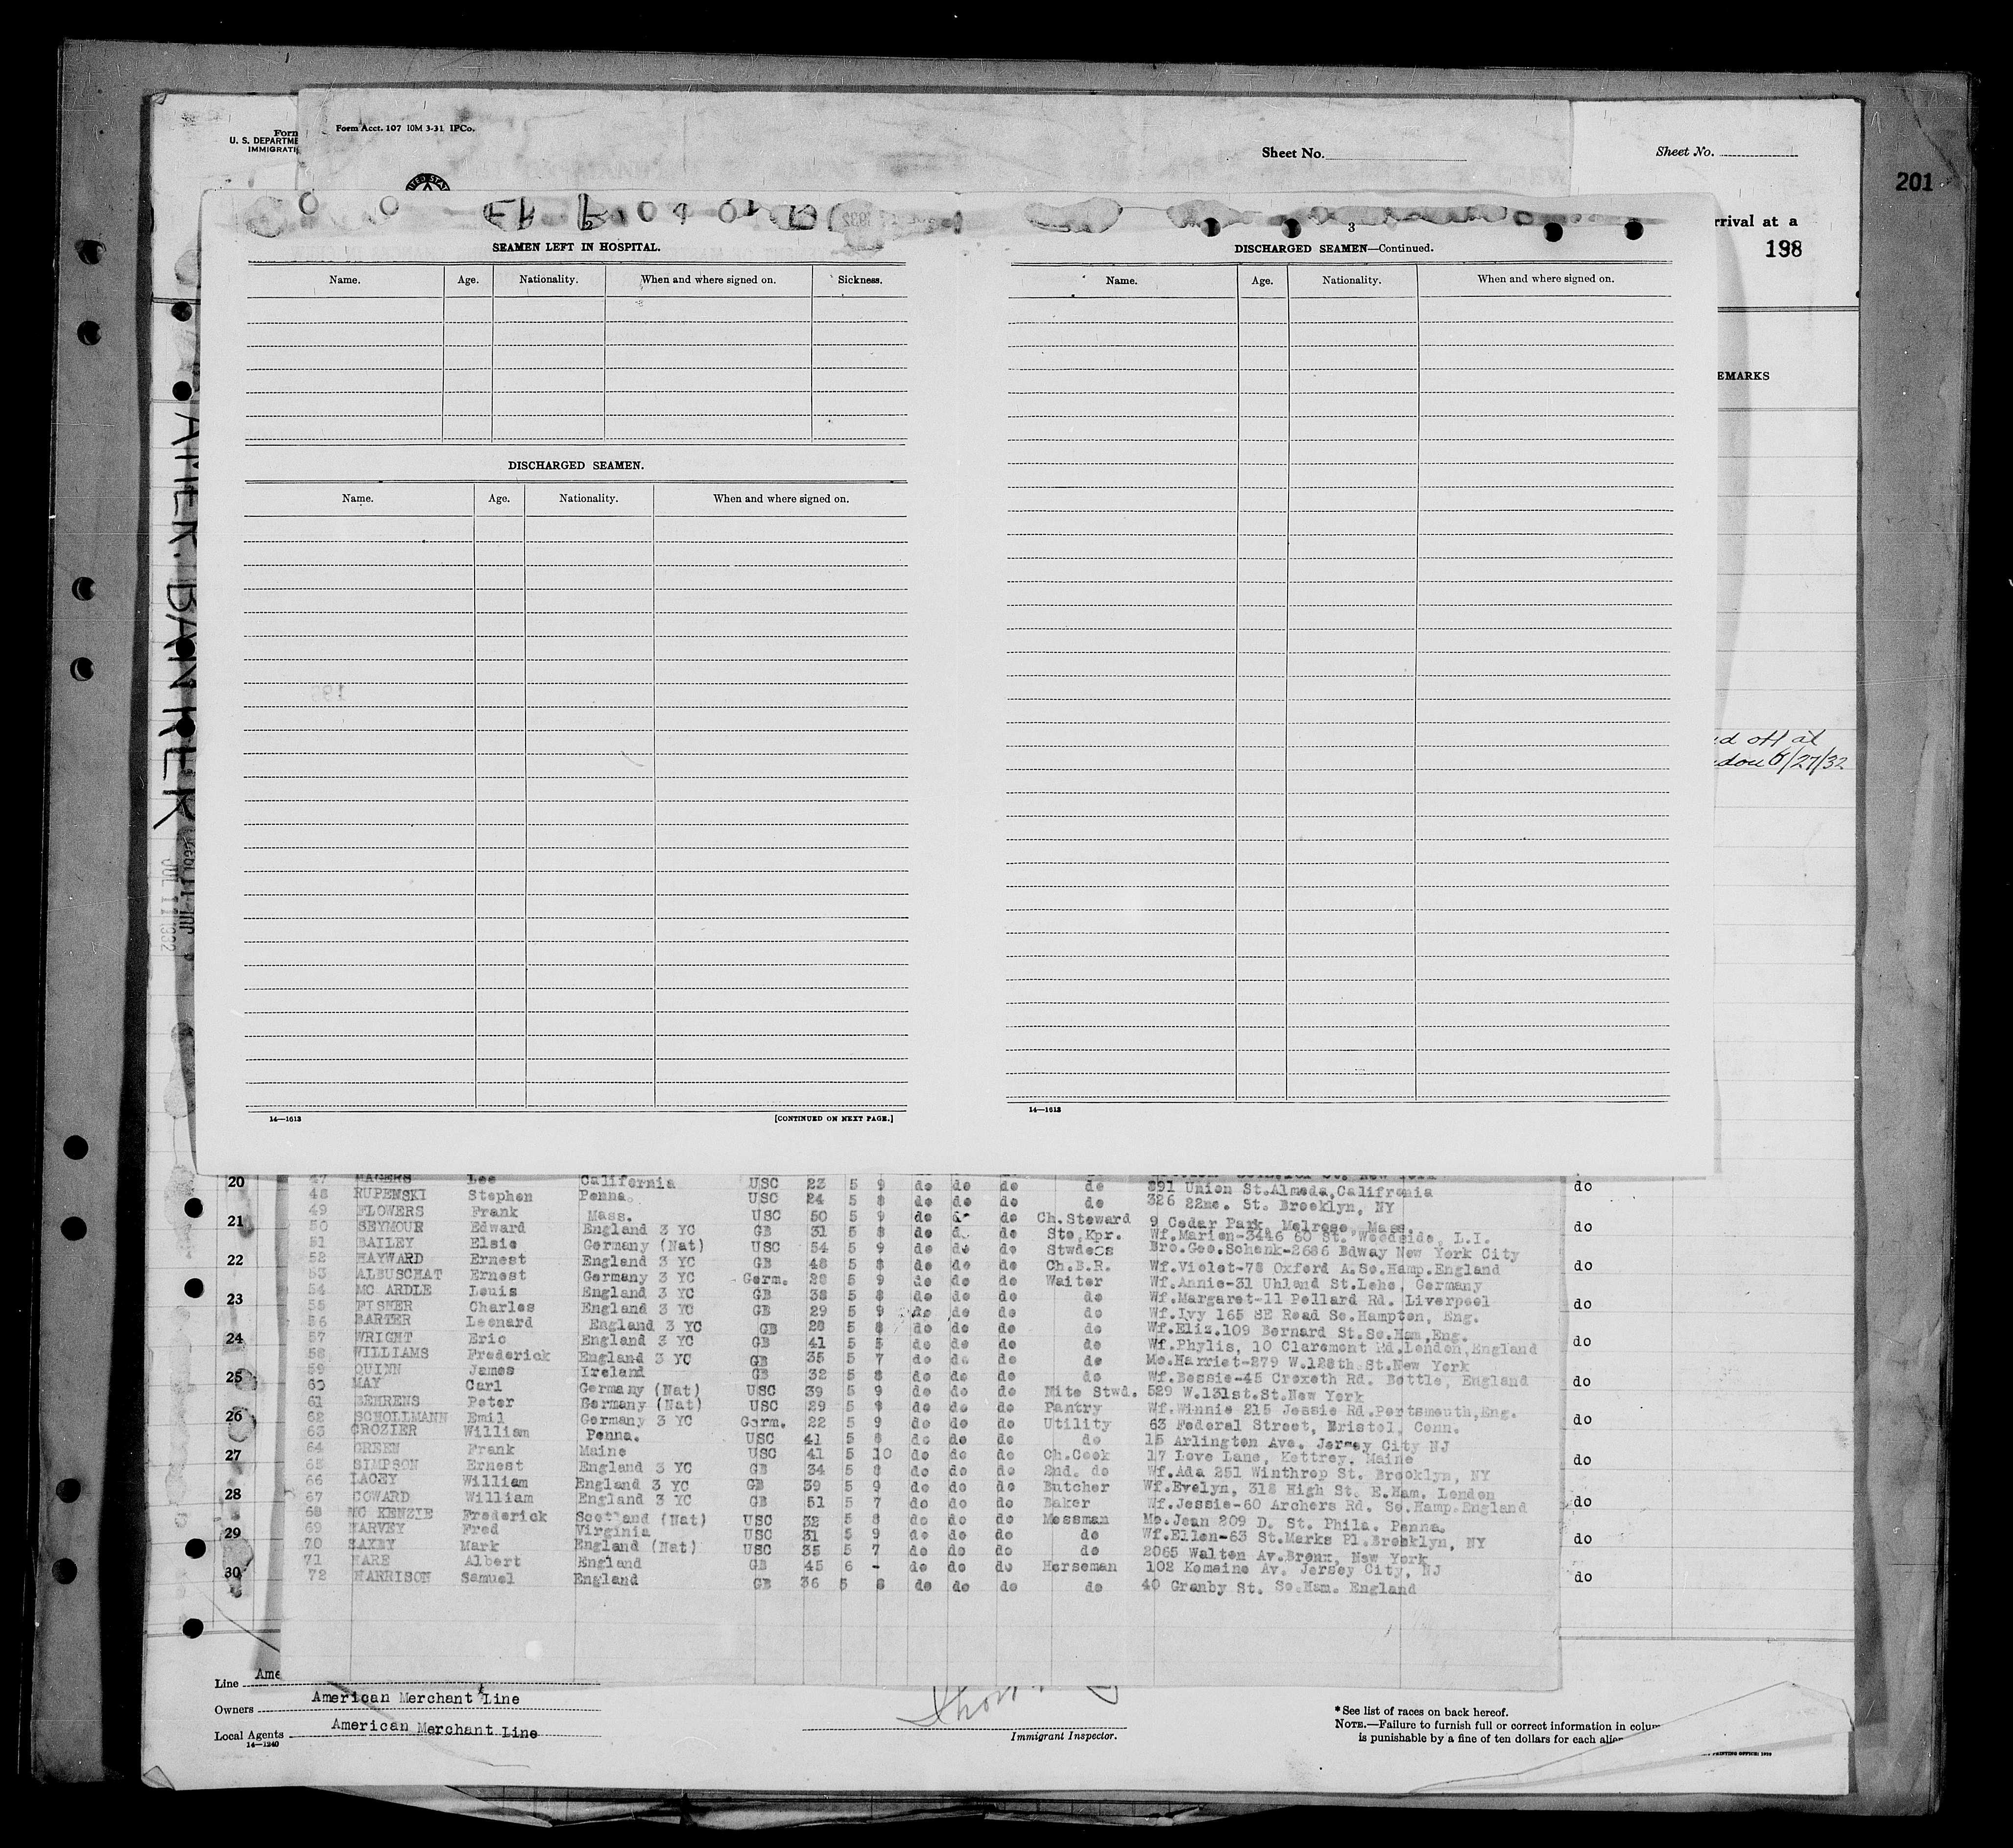 Form
U. S. DEPARTME
IMMIGRATI
Form Acct. 107 10M 3-31 IPCo.
Sheet No.
Sheet No.
201
rrival at a
198
EMARKS
AMER. BANKER
JUL 11 1932
3
SEAMEN LEFT IN HOSPITAL.
Name. Age. Nationality. When and where signed on. Sickness.
DISCHARGED SEAMEN.
Name. Age. Nationality. When and where signed on.
14—1613 [CONTINUED ON NEXT PAGE.]
DISCHARGED SEAMEN—Continued.
Name. Age. Nationality. When and where signed on.
14—1613
off at
6/27/32
20 47 MAGERS Lee California USC 23 5 9 do do do do 891 Union St.Almeda,Califrenia do
48 RUPENSKI Stephen Penna. USC 24 5 8 do do do do 326 22nd. St. Brooklyn, NY
21 49 FLOWERS Frank Mass. USC 50 5 9 do do Ch.Steward 9 Cedar Park, Melrose, Mass. do
50 SEYMOUR Edward England 3 YC GB 31 5 8 do do Sto.Kpr. Wf.Marion-3446 60 St. Woodside, L.I.
51 BAILEY Elsie Germany (Nat) USC 54 5 9 do do do Stwdess Bro.Geo.Schenk-2686 Bdway New York City
22 52 HAYWARD Ernest England 3 YC GB 48 5 8 do do do Ch.B.R. Wf.Violet-78 Oxford A.So.Hamp.England do
53 ALBUSCHAT Ernest Germany 3 YC Germ. 28 5 9 do do do Waiter Wf.Annie-31 Uhland St.Lehe, Germany
23 54 MC ARDLE Louis England 3 YC GB 38 5 8 do do do do Wf.Margaret-11 Pollard Rd. Liverpool do
55 FISHER Charles England 3 YC GB 29 5 9 do do do do Wf.Ivy 165 SE Road So.Hampton, Eng.
56 BARTER Leonard England 3 YC GB 28 5 8 do do do do Wf.Eliz.109 Bernard St.So.Ham,Eng.
24 57 WRIGHT Eric England 3 YC GB 41 5 5 do do do do Wf.Phylis, 10 Claremont Rd.London,England do
58 WILLIAMS Frederick England 3 YC GB 35 5 7 do do do do Mo.Harriet-279 W.128th.St.New York
25 59 QUINN James Ireland GB 32 5 8 do do do do Wf.Bessie-45 Croxeth Rd. Bottle, England do
60 MAY Carl Germany (Nat) USC 39 5 9 do do do Nite Stwd. 529 W.131st.St.New York
61 BEHRENS Peter Germany (Nat) USC 29 5 9 do do do Pantry Wf.Winnie 215 Jessie Rd.Portsmouth,Eng.
26 62 SCHOLLMANN Emil Germany 3 YC Germ. 22 5 9 do do do Utility 63 Federal Street, Bristol, Conn. do
63 CROZIER William Penna. USC 41 5 8 do do do do 15 Arlington Ave. Jersey City NJ
27 64 GREEN Frank Maine USC 41 5 10 do do do Ch.Cook 17 Love Lane, Kettrey. Maine do
65 SIMPSON Ernest England 3 YC GB 34 5 8 do do do 2nd. do Wf.Ada 251 Winthrop St. Brooklyn, NY
28 66 LACEY William England 3 YC GB 39 5 9 do do do Butcher Wf.Evelyn, 318 High St. E.Ham. London do
67 COWARD William England 3 YC GB 51 5 7 do do do Baker Wf.Jessie-60 Archers Rd. So.Hamp.England
68 MC KENZIE Frederick Scotland (Nat) USC 32 5 8 do do do Messman Mo.Jean 209 D. St. Phila. Penna.
29 69 HARVEY Fred Virginia USC 31 5 9 do do do do Wf.Ellen-63 St.Marks Pl.Brooklyn, NY do
70 SAXBY Mark England (Nat) USC 35 5 7 do do do do 2065 Walton Av.Bronx, New York
30 71 HARE Albert England GB 45 6 - do do do Horseman 102 Komaine Av. Jersey City, NJ do
72 HARRISON Samuel England GB 36 5 8 do do do do 40 Granby St. So.Ham. England
Line Ame
Owners American Merchant Line
Local Agents American Merchant Line
14—1240
Immigrant Inspector.
*See list of races on back hereof.
NOTE.—Failure to furnish full or correct information in colum
is punishable by a fine of ten dollars for each alien
PRINTING OFFICE: